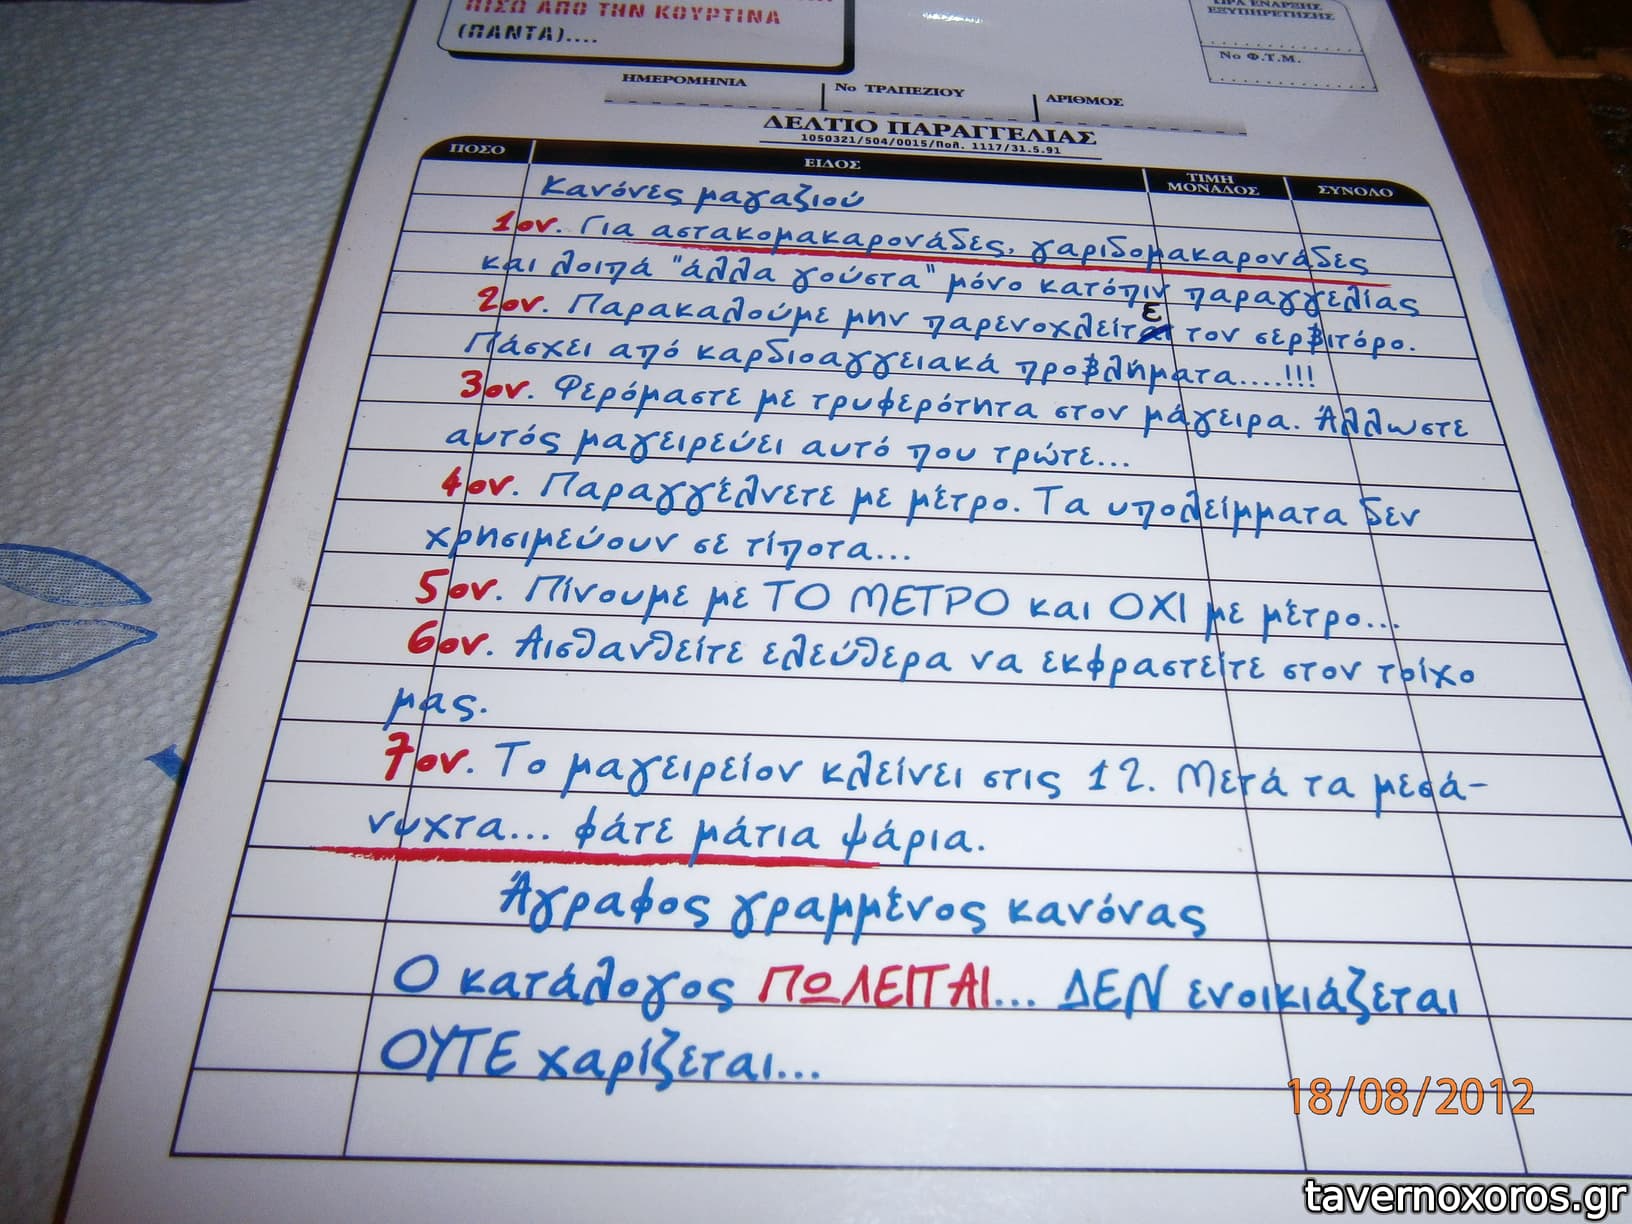 ΠΙΣΩ ΑΠΟ ΤΗΝ ΚΟΥΡΤΙΝΑ
(ΠΑΝΤΑ)....
ΩΡΑ ΕΝΑΡΞΗΣ
ΕΞΥΠΗΡΕΤΗΣΗΣ
Νο Φ.Τ.Μ.
ΗΜΕΡΟΜΗΝΙΑ Νο ΤΡΑΠΕΖΙΟΥ ΑΡΙΘΜΟΣ
ΔΕΛΤΙΟ ΠΑΡΑΓΓΕΛΙΑΣ
1050321/504/0015/Πολ. 1117/31.5.91
ΠΟΣΟ ΕΙΔΟΣ ΤΙΜΗ ΜΟΝΑΔΟΣ ΣΥΝΟΛΟ
Κανόνες μαγαζιού
1ον. Για αστακομακαρονάδες, γαριδομακαρονάδες
και λοιπά "άλλα γούστα" μόνο κατόπιν παραγγελίας
2ον. Παρακαλούμε μην παρενοχλείτε τον σερβιτόρο.
Πάσχει από καρδιοαγγειακά προβλήματα....!!!
3ον. Φερόμαστε με τρυφερότητα στον μάγειρα. Άλλωστε
αυτός μαγειρεύει αυτό που τρώτε...
4ον. Παραγγέλνετε με μέτρο. Τα υπολείμματα δεν
χρησιμεύουν σε τίποτα...
5ον. Πίνουμε με ΤΟ ΜΕΤΡΟ και ΟΧΙ με μέτρο...
6ον. Αισθανθείτε ελεύθερα να εκφραστείτε στον τοίχο
μας.
7ον. Το μαγειρείον κλείνει στις 12. Μετά τα μεσά-
νυχτα... φάτε μάτια ψάρια.
Άγραφος γραμμένος κανόνας
Ο κατάλογος ΠΩΛΕΙΤΑΙ... ΔΕΝ ενοικιάζεται
ΟΥΤΕ χαρίζεται...
18/08/2012
tavernoxoros.gr